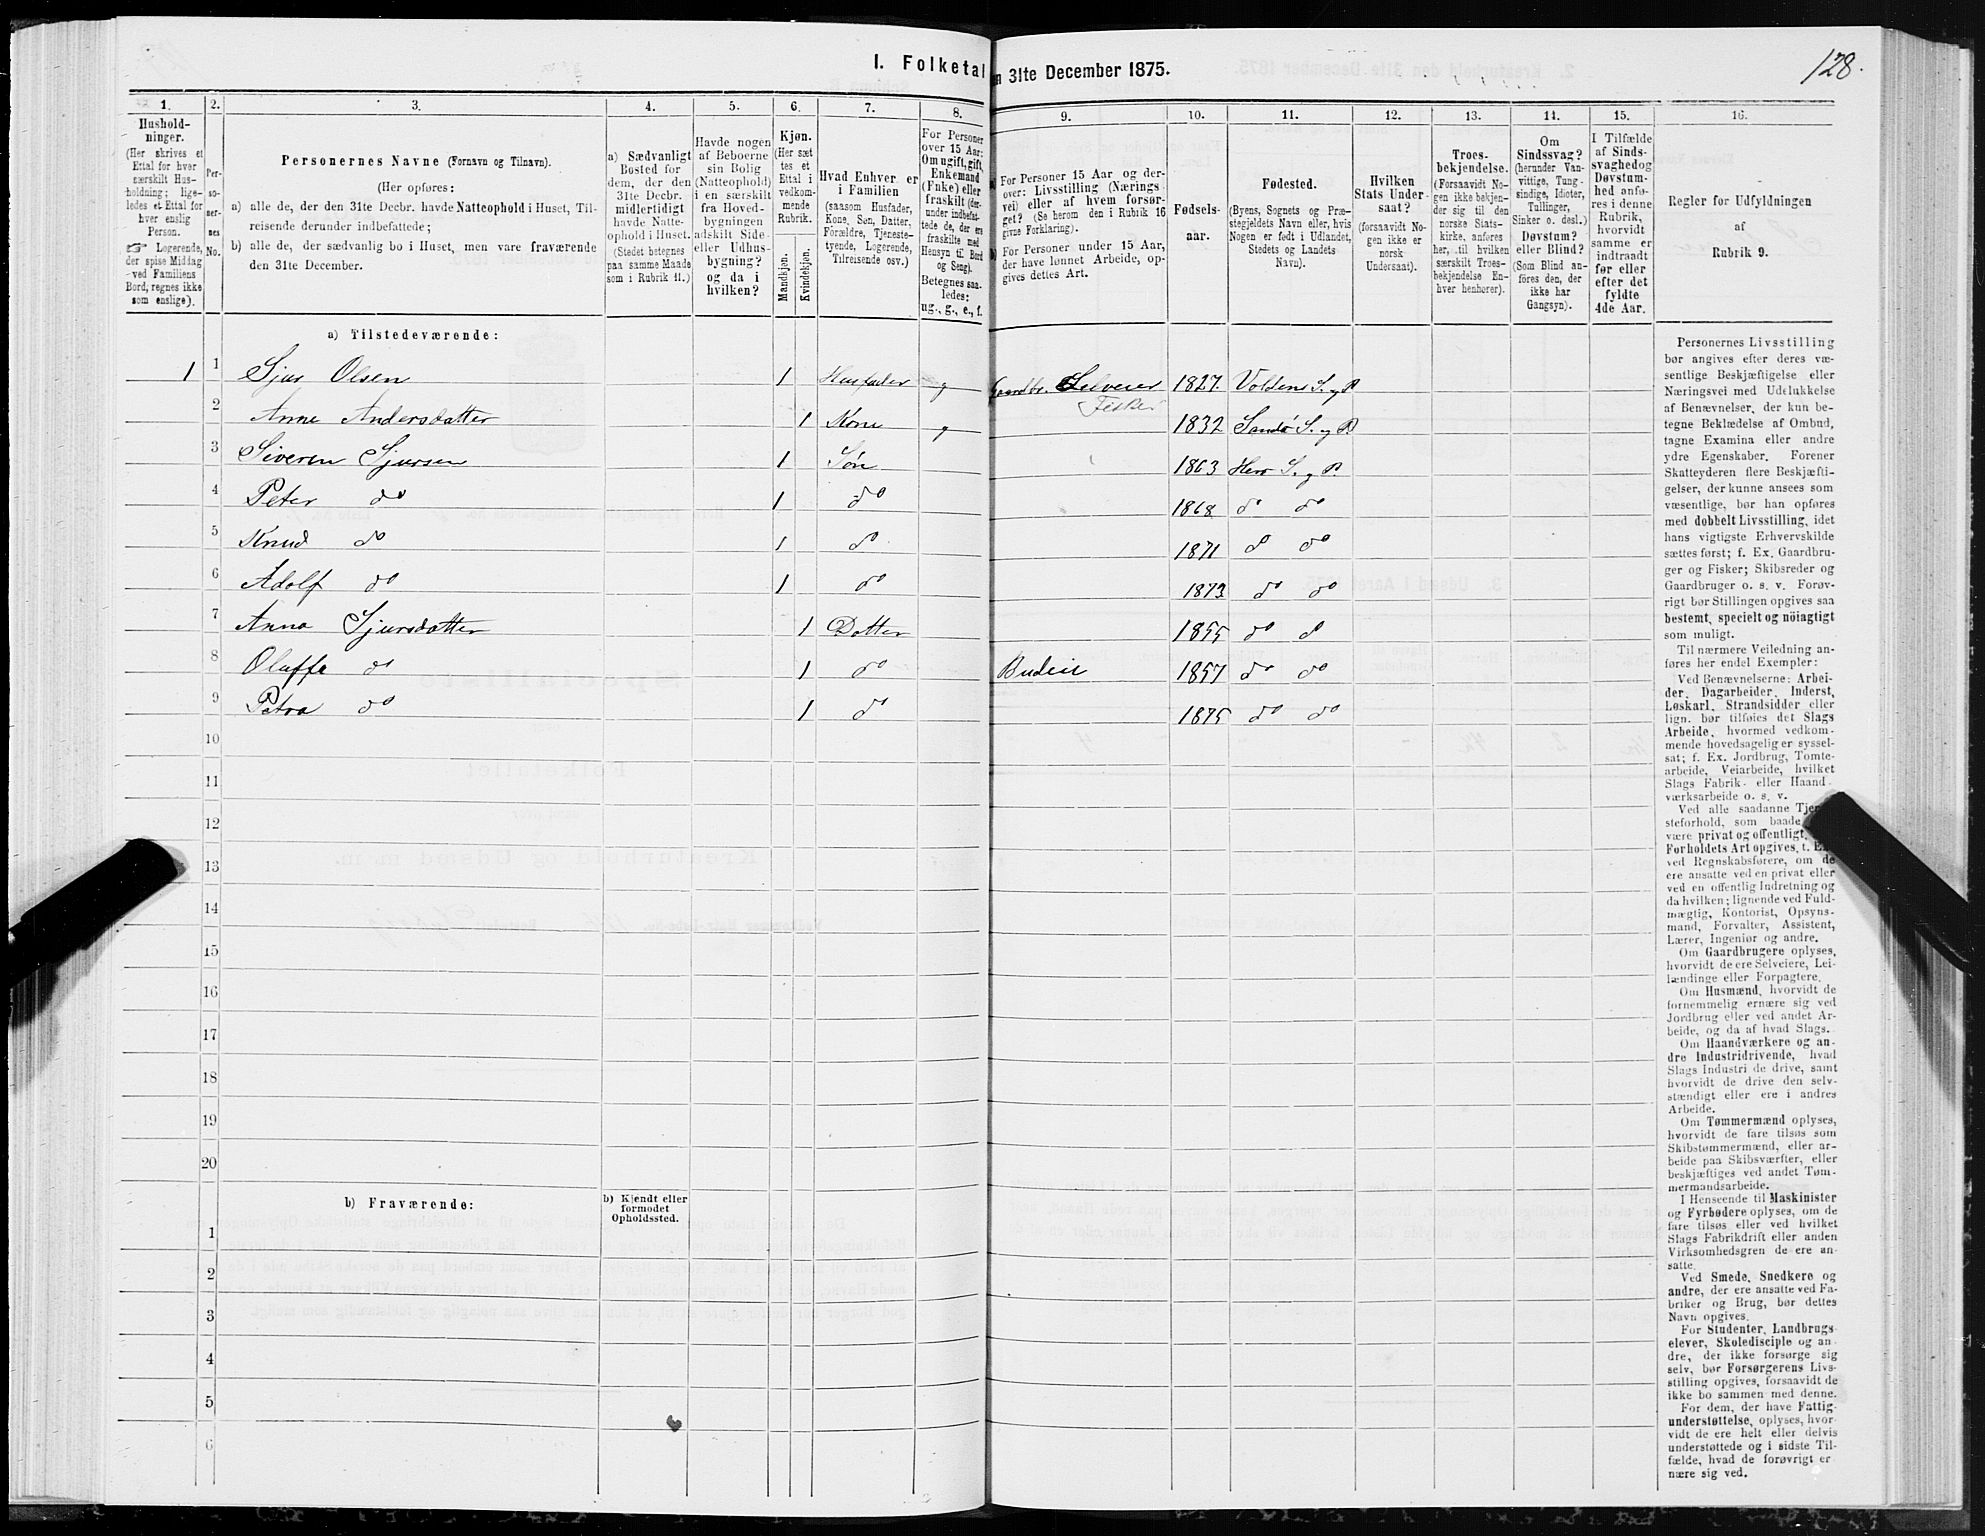 128.
I. Folketal
n 31te December 1875.
1. 2. 3. 4. 5. 6. 7. 8. 9. 10. 11. 12. 13. 14. 15. 16.
Hushold-
ninger.
(Her skrives et
Ettal for hver
særskilt Hus-
holdning; lige-
ledes et Ettal for
hver enslig
Person.
☞ Logerende,
der spise Middag
ved Familiens
Bord, regnes ikke
som enslige).
Per-
so-
ner-
nes
No.
Personernes Navne (Fornavn og Tilnavn).
(Her opføres:
a) alle de, der den 31te Decbr. havde Natteophold i Huset, Til-
reisende derunder indbefattede;
b) alle de, der sædvanlig bo i Huset, men vare fraværende
den 31te December.
a) Sædvanligt
Bosted for
dem, der den
31te Decbr.
midlertidigt
havde Natte-
ophold i Huset.
(Stedet betegnes
paa samme Maade
som i Rubrik 11.)
Havde nogen
af Beboerne
sin Bolig
(Natteophold)
i en særskilt
fra Hoved-
bygningen
adskilt Side-
eller Udhus-
bygning?
og da i
hvilken?
Kjøn.
(Her sæt-
tes et
Ettal i
vedkom-
mende
Rubrik.
Mandkjøn.
Kvindekjøn.
Hvad Enhver er
i Familien
(saasom Husfader,
Kone, Søn, Datter,
Forældre, Tjeneste-
tyende, Logerende,
Tilreisende osv.)
For Personer
over 15 Aar:
Om ugift, gift,
Enkemand
(Enke) eller
fraskilt (der-
under indbefat-
tede de, der ere
fraskilte med
Hensyn til Bord
og Seng).
Betegnes saa-
ledes:
ug., g., e., f.
For Personer 15 Aar og der-
over: Livsstilling (Nærings-
vei) eller af hvem forsør-
get? (Se herom den i Rubrik 16
givne Forklaring).
For Personer under 15 Aar,
der have lønnet Arbeide, op-
gives dettes Art.
Fødsels-
aar.
Fødested.
(Byens, Sognets og Præ-
stegjeldets Navn eller, hvis
Nogen er født i Udlandet,
Stedets og Landets
Navn).
Hvilken
Stats Under-
saat?
(forsaavidt No-
gen ikke er
norsk
Undersaat).
Troes-
bekjendelse.
(Forsaavidt No-
gen ikke bekjen-
der sig til den
norske Stats-
kirke, anføres
her, til hvilken
særskilt Troes-
bekjendelse En-
hver henhører).
Om
Sindssvag?
(herunder Van-
vittige, Tung-
sindige, Idioter,
Tullinger,
Sinker o. desl.)
Døvstum?
eller Blind?
(Som Blind an-
føres den, der
ikke har
Gangsyn).
I Tilfælde
af Sinds-
svaghed og
Døvstum-
hed anfø-
res i denne
Rubrik,
hvorvidt
samme er
indtraadt
før eller
efter det
fyldte
4de Aar.
Regler for Udfyldningen
af
Rubrik 9.
a) Tilstedeværende:
1 1 Sjur Olsen 1 Husfader g Gaardbr. Selveier 1827. Voldens S. og P
Fisker
2 Anne Andersdatter 1 Kone g 1832 Sandø S. og P.
3 Siveren Sjursen 1 Søn 1863 Herø S. og P.
4 Peter do 1 do 1868 do do
5 Knud do 1 do 1871 do do
6 Adolf do 1 do 1873 do do
7 Anna Sjursdatter 1 Datter 1855 do do
8 Oluffa do 1 do Budeie 1857 do do
9 Petra do 1 do 1875 do do
10
11
12
13
14
15
16
17
18
19
20
b) Fraværende:
b) Kjendt eller
formodet
Opholdssted.
1
2
3
4
5
6
Personernes Livsstilling
bør angives efter deres væ-
sentlige Beskjæftigelse eller
Næringsvei med Udelukkelse
af Benævnelser, der kun be-
tegne Beklædelse af Ombud,
tagne Examina eller andre
ydre Egenskaber. Forener
Skatteyderen flere Beskjæfti-
gelser, der kunne ansees som
væsentlige, bør han opføres
med dobbelt Livsstilling, idet
hans vigtigste Erhvervskilde
sættes først; f. Ex. Gaardbru-
ger og Fisker; Skibsreder og
Gaardbruger o. s. v. Forøv-
rigt bør Stillingen opgives saa
bestemt, specielt og nöiagtigt
som muligt.
Til nærmere Veiledning an-
føres her endel Exempler:
Ved Benævnelserne: Arbei-
der, Dagarbeider, Inderst,
Løskarl, Strandsidder eller
lign. bør tilføies det Slags
Arbeide, hvormed vedkom-
mende hovedsagelig er syssel-
sat; f. Ex. Jordbrug, Tomte-
arbeide, Veiarbeide, hvilket
Slags Fabrik- eller Haand-
værksarbeide o. s. v.
Ved alle saadanne Tjene-
steforhold, som baade
være privat og offentligt,
Forholdets Art opgives, t. Ex.
ved Regnskabsførere, om de
ere ansatte ved en privat eller
ved en offentlig Indretning og
da hvilken; lignende ved Fuld-
mægtig, Kontorist, Opsyns-
mand, Forvalter, Assistent,
Lærer, Ingeniør og andre.
Om Gaardbrugere oplyses,
hvorvidt de ere Selveiere, Lei-
lændinge eller Forpagtere.
Om Husmænd, hvorvidt de
fornemmelig ernære sig ved
Jordbrug eller ved andet Ar-
beide, og da af hvad Slags.
Om Haandværkere og an-
dre Industridrivende, hvad
Slags Industri de drive, samt
hvorvidt de drive den selv-
stændigt eller ere i andres
Arbeide.
Om Tømmermænd oplyses,
hvorvidt de fare tilsøs som
Skibstømmermænd, eller ar-
beide paa Skibsværfter, eller
beskjæftiges ved andet Tøm-
mermandsarbeide.
I Henseende til Maskinister
og Fyrbødere oplyses, om de
fare tilsøs eller ved hvilket
Slags Fabrikdrift eller anden
Virksomhedsgren de ere an-
satte.
Ved Smede, Snedkere og
andre, der ere ansatte ved Fa-
briker og Brug, bør dettes
Navn opgives.
For Studenter, Landbrugs-
elever, Skoledisciple og an-
dre, der ikke forsørge sig
selv, bør Forsørgerens Livs-
stilling opgives, forsaavidt de
ikke bo sammen med denne.
For dem, der have Fattig-
understøttelse, oplyses, hvor-
vidt de ere helt eller delvis
understøttede og i sidste Til-
fælde, hvad de forøvrigt er-
nære sig ved.